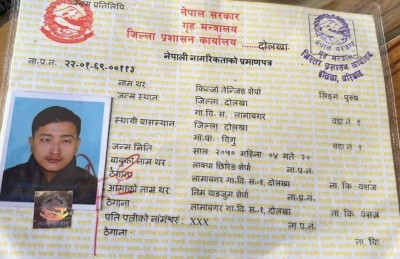 नेपाल सरकार
गृह मन्त्रालय
जिल्ला प्रशासन कार्यालय ......दोलखा......
नेपाली नागरिकताको प्रमाणपत्र
ना.प्र.नं. २२-०१-६९-००११३
नेपाल सरकार
गृह मन्त्रालय
जिल्ला प्रशासन कार्यालय
नाम थर: किन्जो तेन्जिङ शेर्पा लिङ्गः पुरुष
जन्म स्थान: जिल्ला: दोलखा
गा.वि.स.: लामाबगर वडा नं. १
स्थायी बासस्थान: जिल्ला: दोलखा
गा.पा. विगु वडा नं १
जन्म मिति : साल २०५० महिना ०४ गते २०
बाबुको नाम थर: लाक्पा छिरिङ शेर्पा ना.प्र.नं.
ठेगाना: लामाबगर गा.वि.स.-१, दोलखा ना. कि. वंशज
आमाको नाम थर: निम याङजुम शेर्पा ना.प्र.नं.
ठेगाना: लामाबगर गा.वि.स.-१, दोलखा ना. कि. वंशज
पति पत्नीको नामथर: XXX ना.प्र.नं.
ठेगाना: ना. कि.